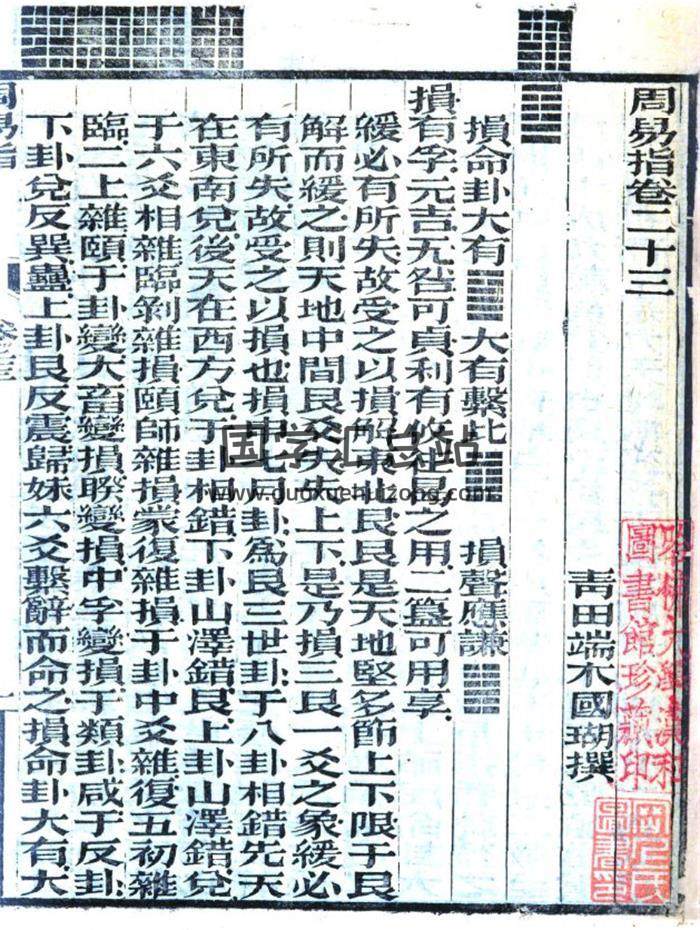 周易指卷二十三
青田端木國瑚撰
損命卦大有 大有繫比 損聲應謙
損有孚元吉无咎可貞利有攸往曷之用二簋可用享
緩必有所失故受之以損解東北艮艮是天地堅多節上下限于艮
解而緩之則天地中間艮爻失失上下是乃損三艮一爻之象緩必
有所失故受之以損也損中七局卦爲艮三世卦于八卦相錯先天
在東南兌後天在西方兌于卦相錯下卦山澤錯艮上卦山澤錯兌
于六爻相雜臨剝雜損頤師雜損蒙復雜損于卦中爻雜復五初雜
臨二上雜頤于卦變大畜變損睽變損中孚變損于類卦咸于反卦
下卦兌反巽蠱上卦艮反震歸妹六爻繫辭而命之損命卦大有大
周易指
圖書館珍藏印
国学汇总站
www.guoxuehuizong.com